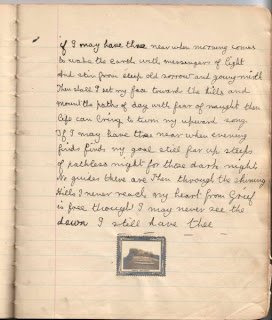 if I may have thee near when morning comes
to wake the earth with messengers of light
And stir from sleep old sorrow and young mirth
Then shall I set my face toward the hills and
mount the paths of day with fear of naught then
life can bring to turn my upward song
If I may have thee near when evening
finds finds my goal still far up steeps
of pathless night for those dark nights
No guides there are Then through the shining
Hills I never reach my heart from Grief
is free though I may never see the
dawn I still have thee